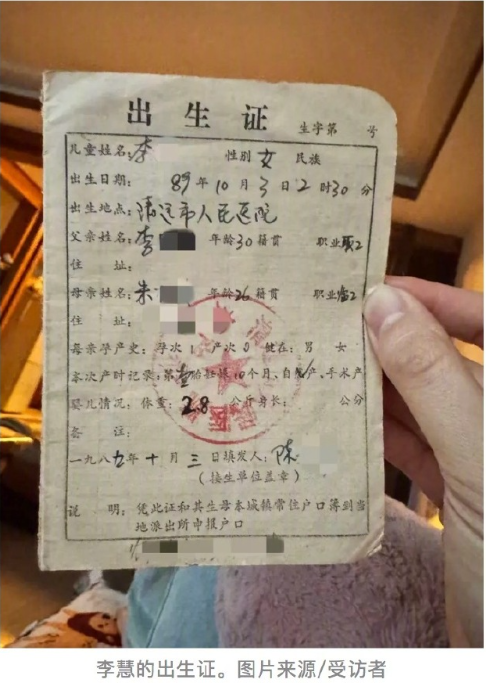 出生证
生字第 号
儿童姓名:李 性别 女 民族
出生日期: 89年10月3日2时30分
出生地点:清远市人民医院
父亲姓名:李 年龄30籍贯 职业
住 址:
母亲姓名:朱 年龄26籍贯 职业
住 址:
母亲孕产史:孕次1产次0健在:男 女
本次产时记录:第壹胎妊娠10个月、自然产、手术产
婴儿情况:体重:2.8公斤身长: 公分
备 注:
一九八九年十月三日填发人:陈
(接生单位盖章)
说 明:凭此证和其生母本城镇常住户口簿到当
地派出所申报户口
李慧的出生证。图片来源/受访者